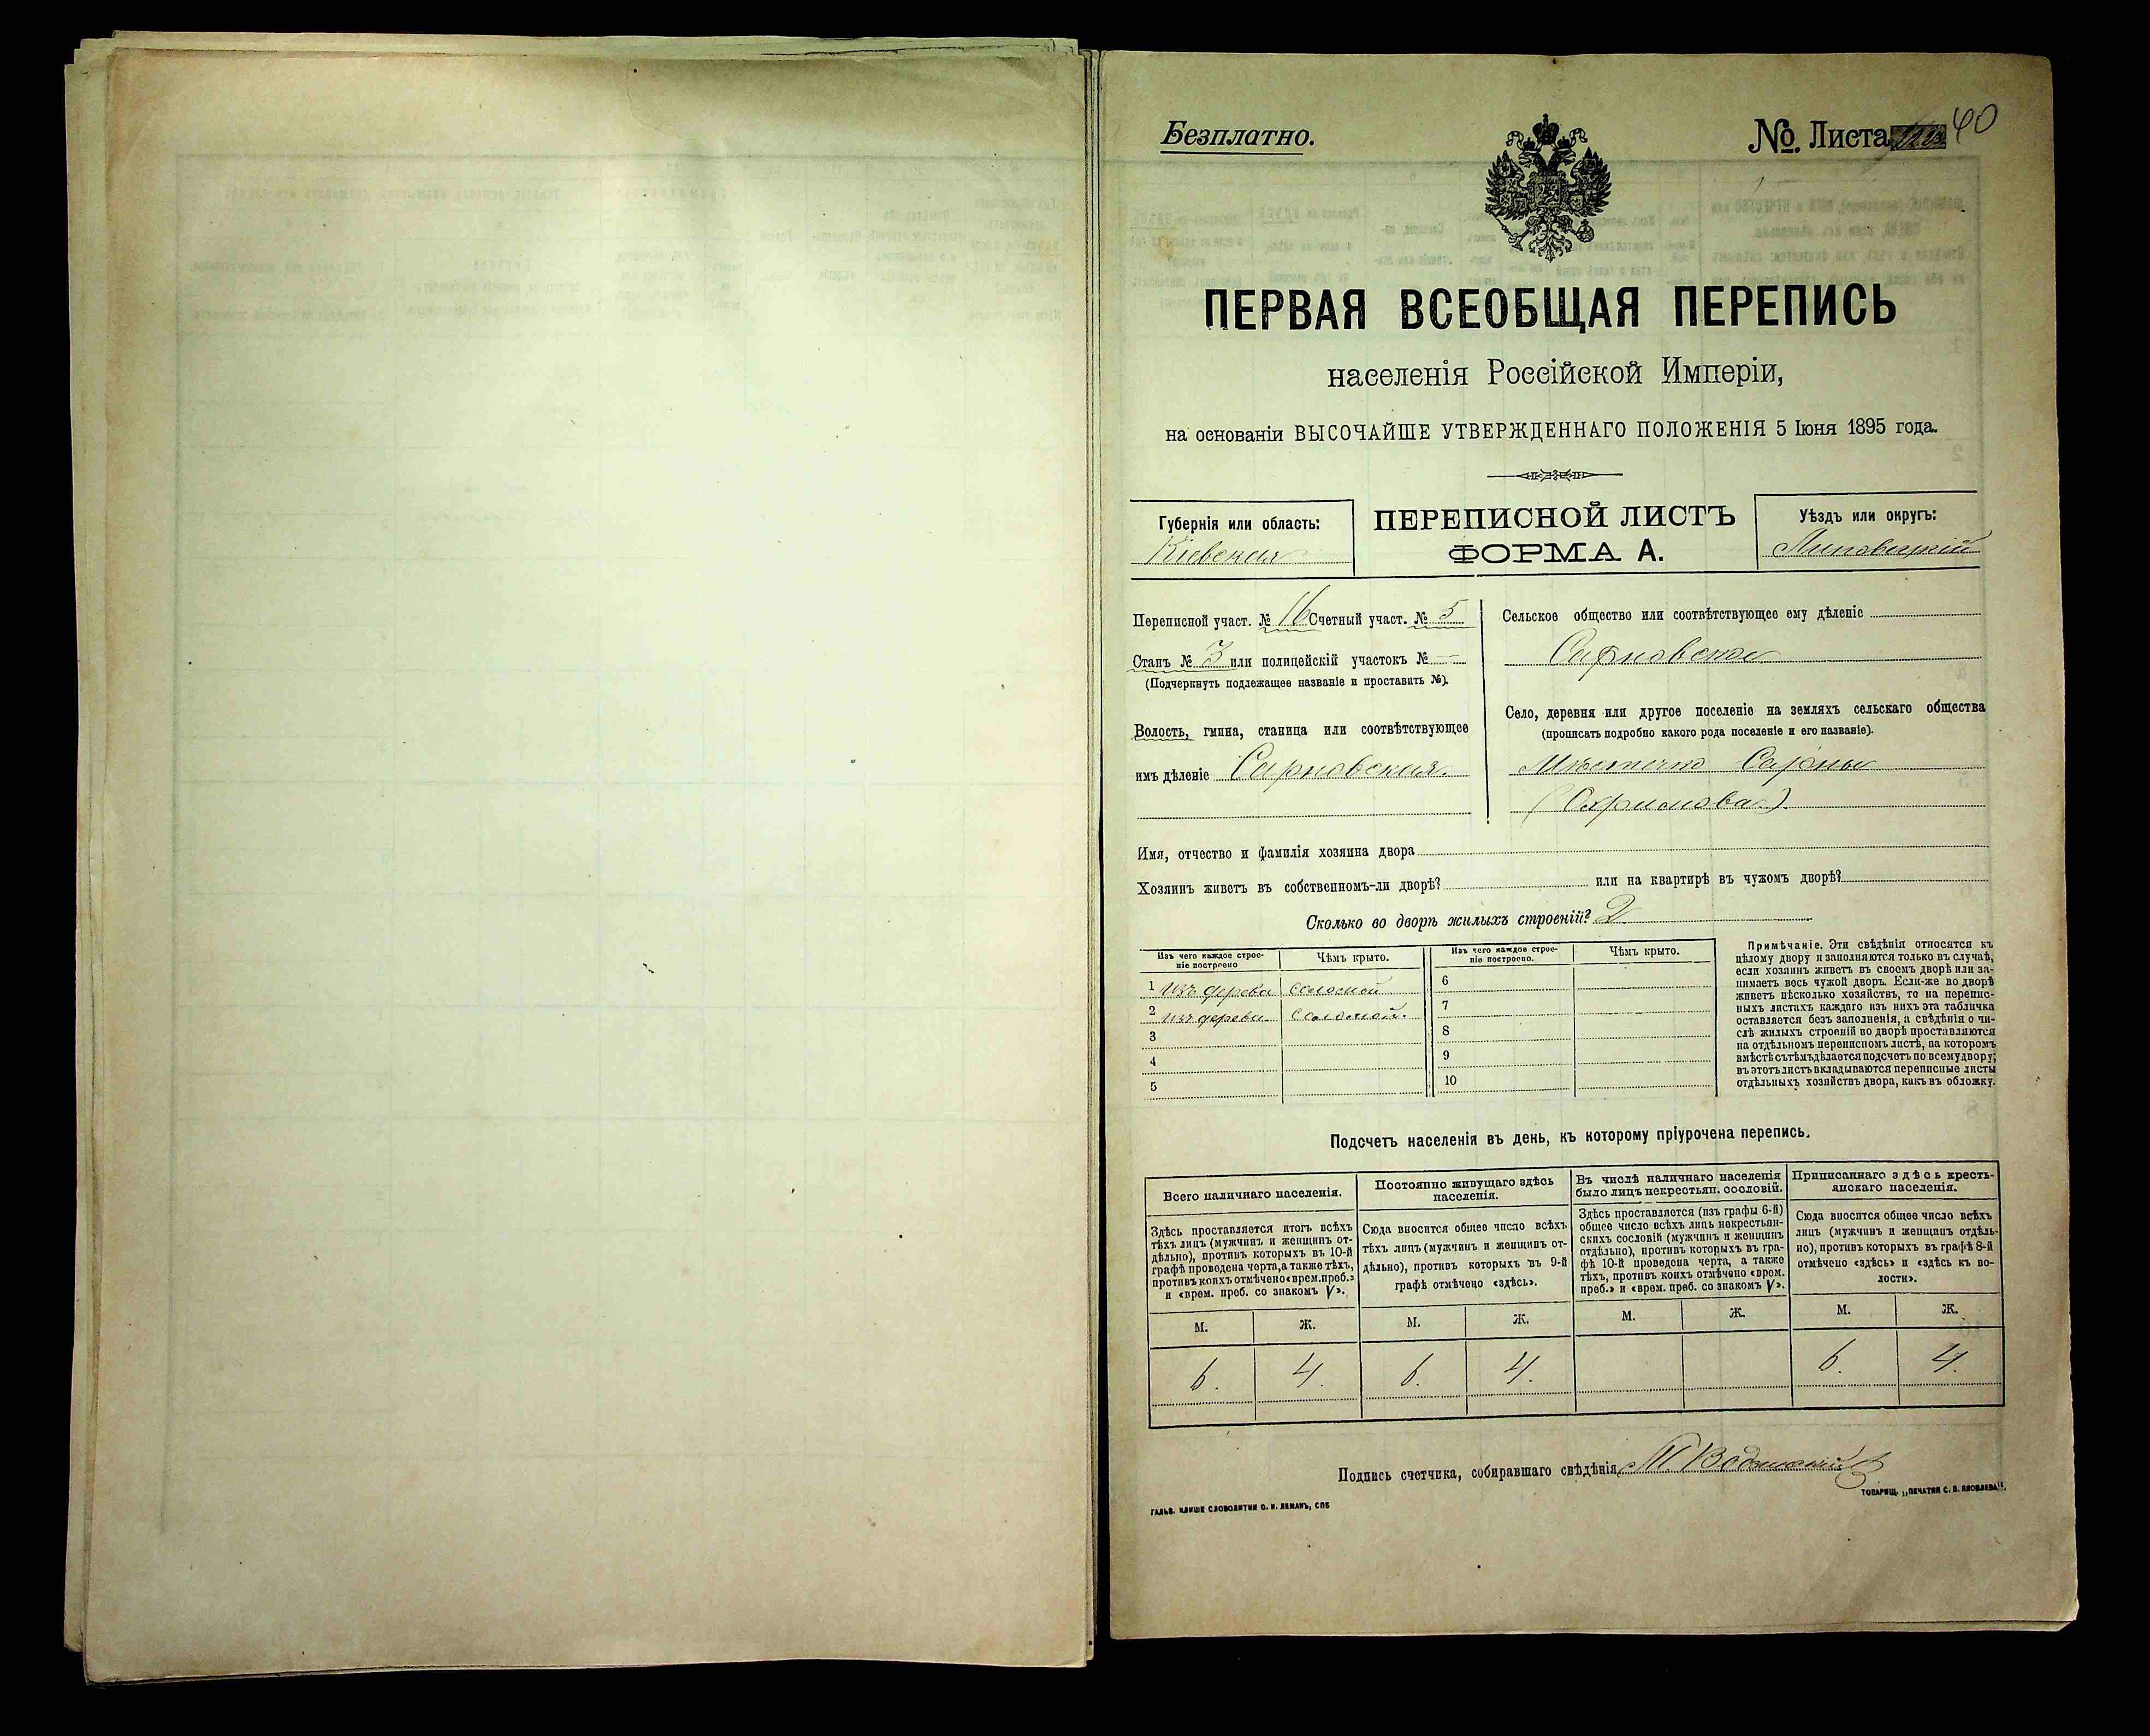 Безплатно.
№. Листа 40
ПЕРВАЯ ВСЕОБЩАЯ ПЕРЕПИСЬ
населенія Россійской Имперіи,
на основаніи ВЫСОЧАЙШЕ УТВЕРЖДЕННАГО ПОЛОЖЕНІЯ 5 Іюня 1895 года.
Губернія или область:
Кіевская
ПЕРЕПИСНОЙ ЛИСТЪ
ФОРМА А.
Уѣздъ или округъ:
Липовецкій
Переписной участ. № 16 Счетный участ. № 5
Станъ № 3 или полицейскій участокъ № —
(Подчеркнуть подлежащее названіе и проставить №).
Волость, гмина, станица или соотвѣтствующее
имъ дѣленіе Сарновская.
Сельское общество или соотвѣтствующее ему дѣленіе
Сарновское
Село, деревня или другое поселеніе на земляхъ сельскаго общества
(прописать подробно какого рода поселеніе и его названіе).
Мѣстечко Сарны
(Охримова)
Имя, отчество и фамилія хозяина двора
Хозяинъ живетъ въ собственномъ-ли дворѣ? или на квартирѣ въ чужомъ дворѣ?
Сколько во дворѣ жилыхъ строеній? 2
Изъ чего каждое строе-
ніе построено
Чѣмъ крыто.
1 Изъ дерева соломой
2 изъ дерева соломой.
3
4
5
Изъ чего каждое строе-
ніе построено.
Чѣмъ крыто.
6
7
8
9
10
Примѣчаніе. Эти свѣдѣнія относятся къ
цѣлому двору и заполняются только въ случаѣ,
если хозяинъ живетъ въ своемъ дворѣ или за-
нимаетъ весь чужой дворъ. Если-же во дворѣ
живетъ нѣсколько хозяйствъ, то на перепис-
ныхъ листахъ каждаго изъ нихъ эта табличка
оставляется безъ заполненія, а свѣдѣнія о чи-
слѣ жилыхъ строеній во дворѣ проставляются
на отдѣльномъ переписномъ листѣ, на которомъ
вмѣстѣ съ тѣмъ дѣлается подсчетъ по всему двору;
въ этотъ листъ вкладываются переписные листы
отдѣльныхъ хозяйствъ двора, какъ въ обложку.
Подсчетъ населенія въ день, къ которому пріурочена перепись.
Всего наличнаго населенія.
Здѣсь проставляется итогъ всѣхъ
тѣхъ лицъ (мужчинъ и женщинъ от-
дѣльно), противъ которыхъ въ 10-й
графѣ проведена черта, а также тѣхъ,
противъ коихъ отмѣчено «врем. преб.»
и «врем. преб. со знакомъ V».
Постоянно живущаго здѣсь
населенія.
Сюда вносится общее число всѣхъ
тѣхъ лицъ (мужчинъ и женщинъ от-
дѣльно), противъ которыхъ въ 9-й
графѣ отмѣчено «здѣсь».
Въ числѣ наличнаго населенія
было лицъ некрестьян. сословій.
Здѣсь проставляется (изъ графы 6-й)
общее число всѣхъ лицъ некрестьян-
скихъ сословій (мужчинъ и женщинъ
отдѣльно), противъ которыхъ въ гра-
фѣ 10-й проведена черта, а также
тѣхъ, противъ коихъ отмѣчено «врем.
преб.» и «врем. преб. со знакомъ V».
Приписаннаго здѣсь кресть-
янскаго населенія.
Сюда вносится общее число всѣхъ
лицъ (мужчинъ и женщинъ отдѣль-
но), противъ которыхъ въ графѣ 8-й
отмѣчено «здѣсь» и «здѣсь къ во-
лости».
М. Ж. М. Ж. М. Ж. М. Ж.
6. 4. 6. 4. 6. 4.
Подпись счетчика, собиравшаго свѣдѣнія
ГАЛЬВ. КЛИШЕ СЛОВОЛИТНИ О. И. ЛЕМАНЪ, СПБ
ТОВАРИЩ. „ПЕЧАТНЯ С. П. ЯКОВЛЕВА".